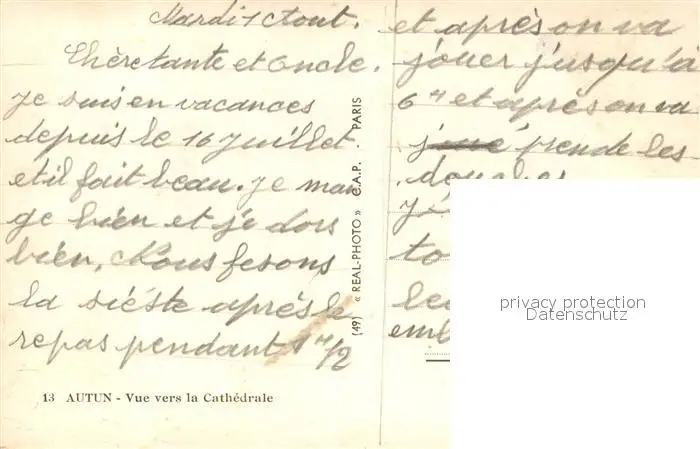 Mardi 1 Aout.
Chère tante et Oncle.
Je suis en vacances
depuis le 16 Juillet
et il fait beau. Je man
ge bien et je dors
bien. Nous fesons
la siéste aprés le
repas pendant 1 H/2
et après on va
jouer jusqu'a
6 H et après on va
prende les
douches
to
emb
(49) « REAL-PHOTO » C.A.P. PARIS
13 AUTUN - Vue vers la Cathédrale
privacy protection
Datenschutz